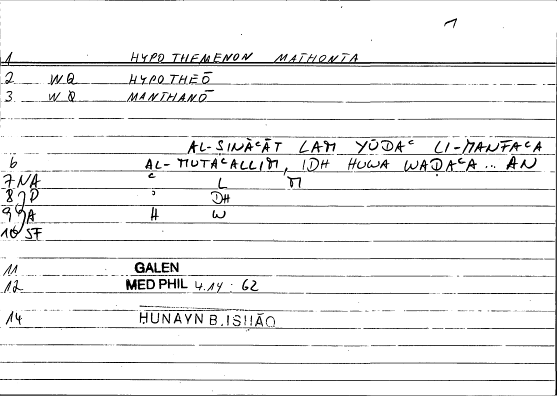 1
1 HYPO THEMENON MATHONTA
2 WQ HYPOTHEŌ
3 WQ MANTHANŌ
AL-SINĀᶜĀT LAM YŪDAᶜ LI-MANFAᶜA
6 AL-MUTAᶜALLIM, IDH HUWA WAḌAᶜA ... AN
7 NA ᶜ L M
8 JD ʾ DH
9 JA H W
10 SF
11 GALEN
12 MED PHIL 4.14 : 62
14 HUNAYN B.ISHĀQ